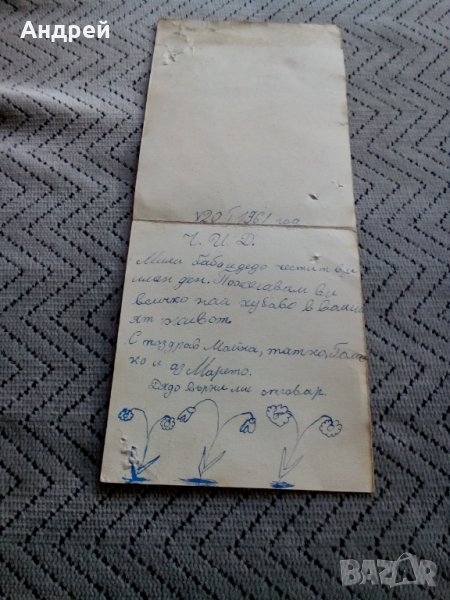 Андрей
20 I 1961 год
Ч. И. Д.
Мили бабо и дедо честит ви
имен ден. Пожелавам ви
всичко най хубаво в ваши
ят живот
С поздрав Майка, татко,
ко и аз Марето.
Дядо върни ми отговар.
BAZAR